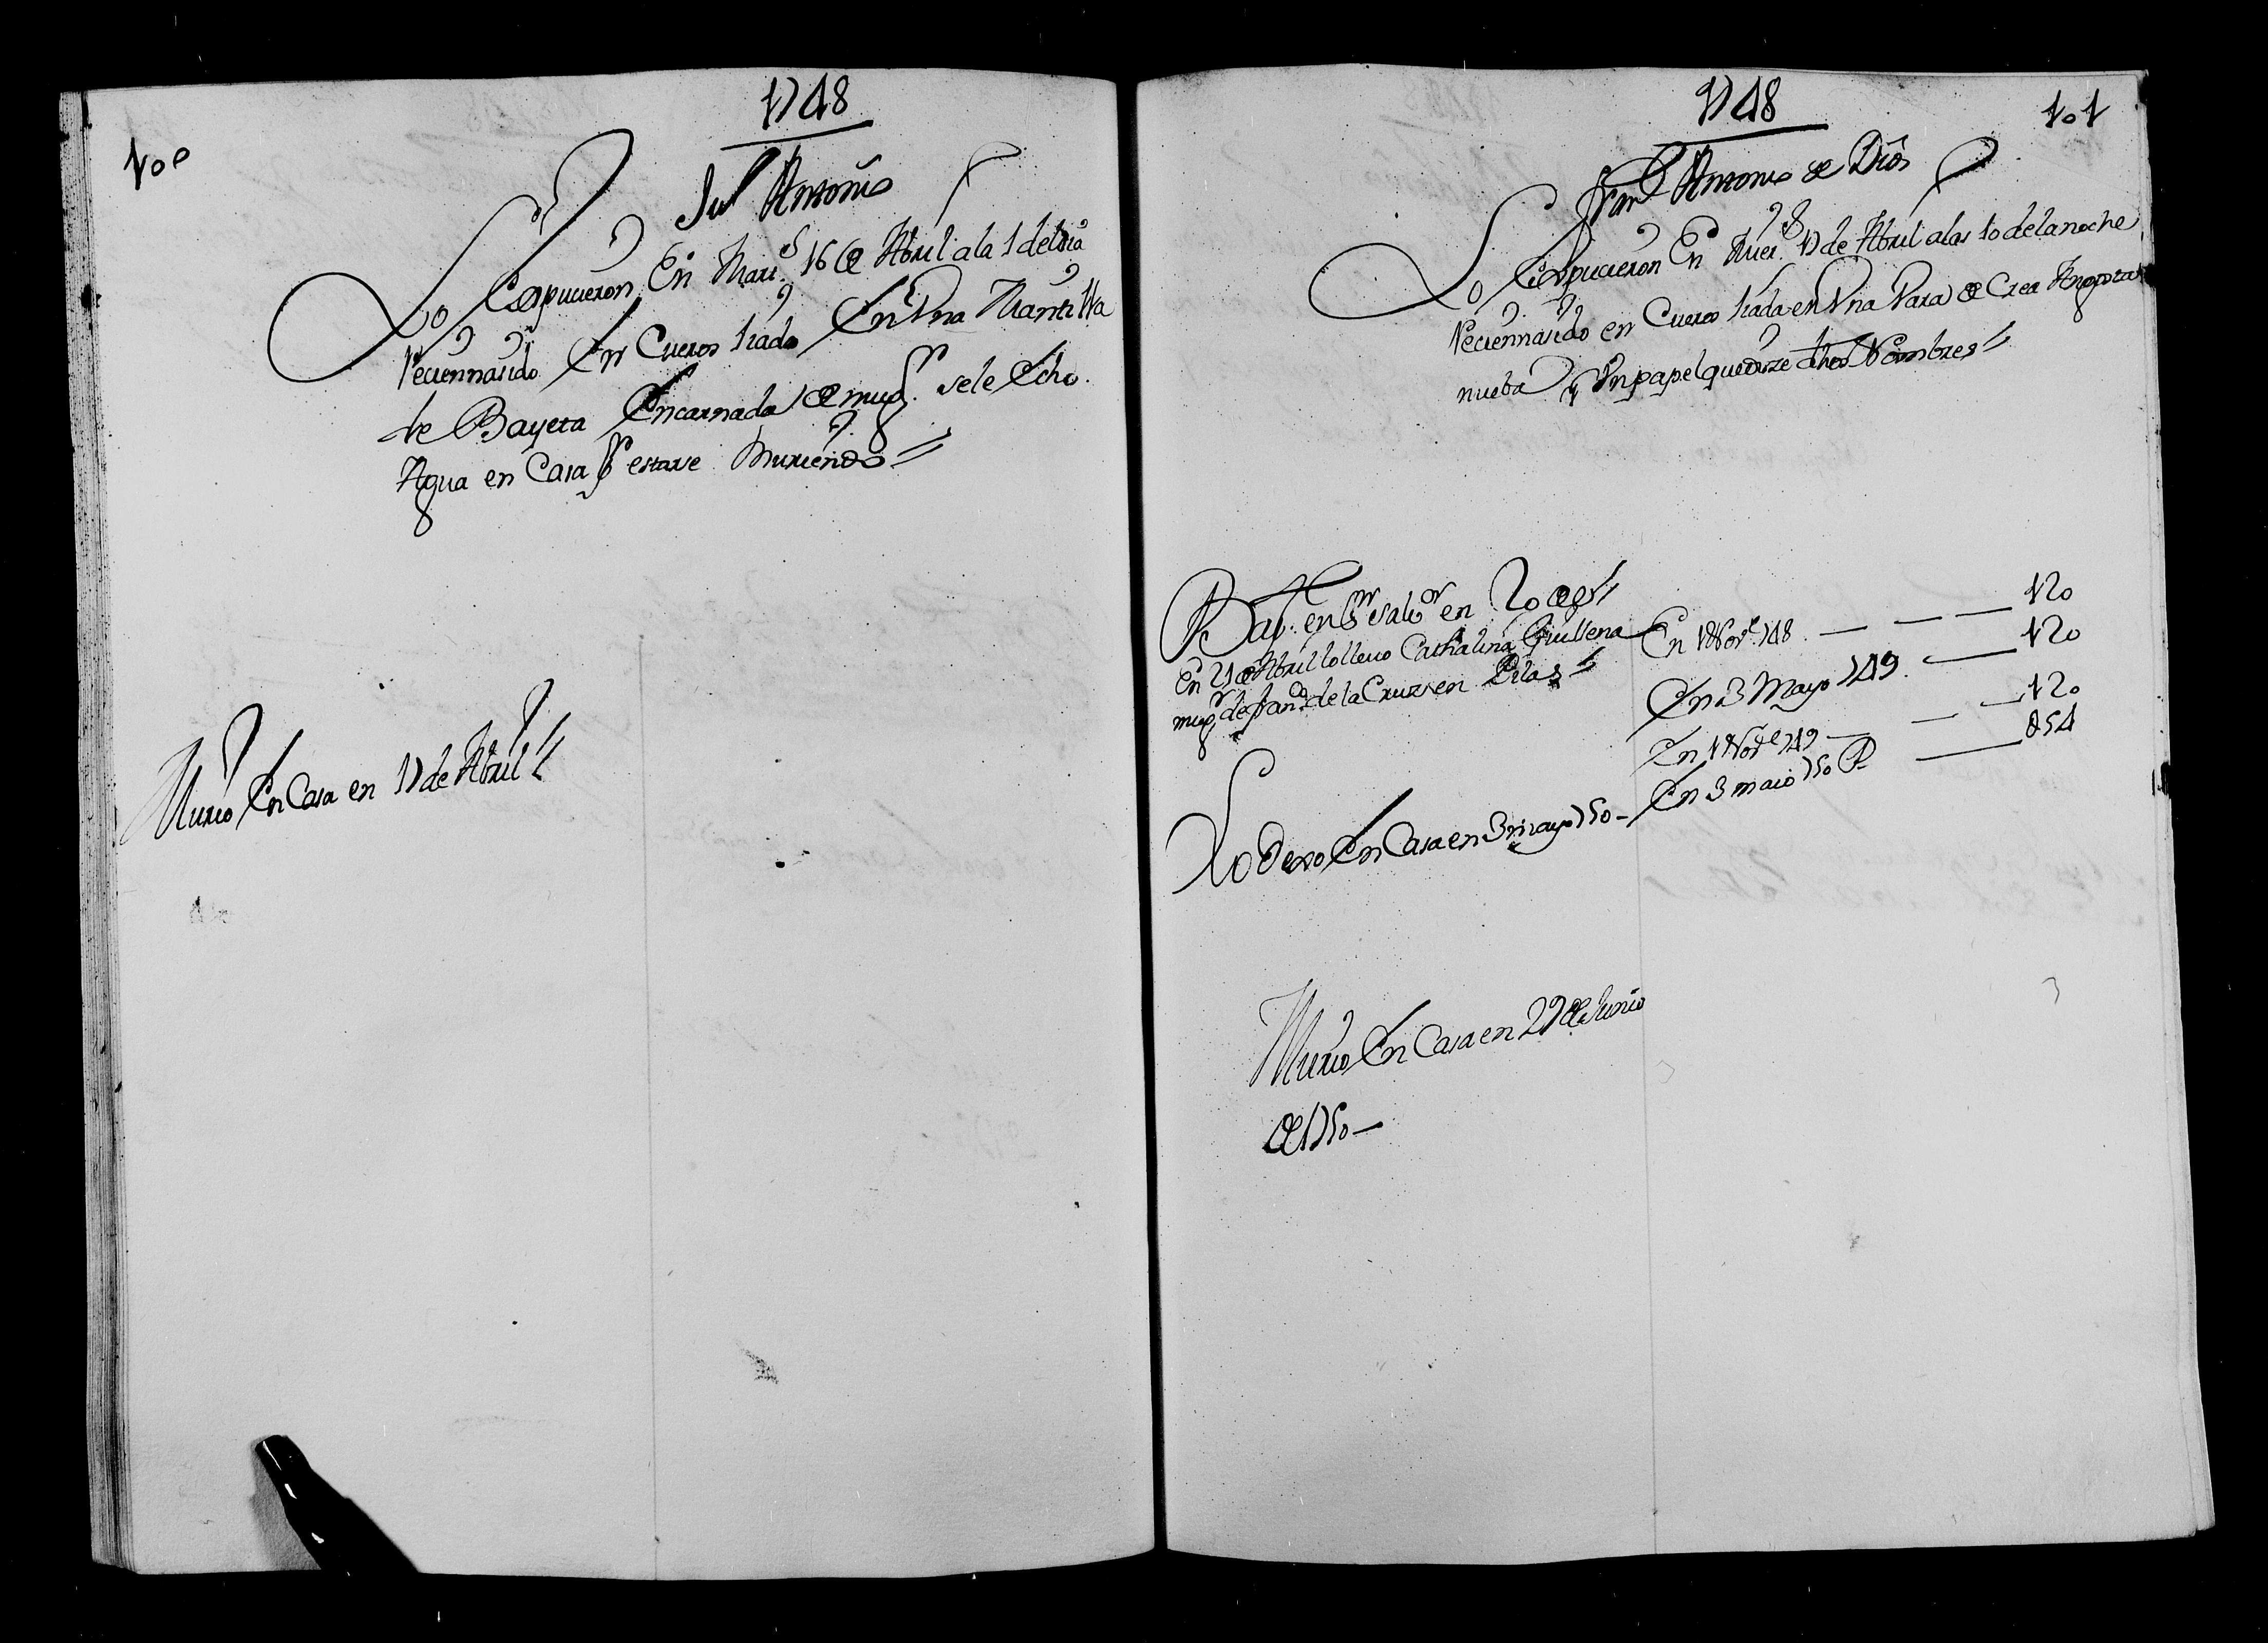 1748
100
Jul Antonio
Lo Expucieron En Mart.s 16 de Abril a la 1 del dia
reciennasido En Cueros liado En Vna Mantilla
de Bayeta Encarnada de mug.r se le Echo
Agua en Casa pr estarse Muriendo
Murio En Casa en 17 de Abril
1748
101
Fran.co Antonio de Dios
Lo Expucieron En Mier.s 17 de Abril a las 10 de la noche
reciennasido en Cueros liado en Vna Vara de Crea Angosta
nueba y Vn papel que dize dhos Nombres
Bap. en Sn Salv.or en 20 de
En 21 de Abril lo llevo Cathalina Guillena
mug.r de Fran.co de la Cruz en Pilas
En 1 Nov.e 748 120
En 3 Mayo 749 120
En 1 Nov.e 749 120
En 3 maio 750 054
Lo Dexo En Casa en 3 mayo 750
Murio En Casa en 27 de Junio
de 1750